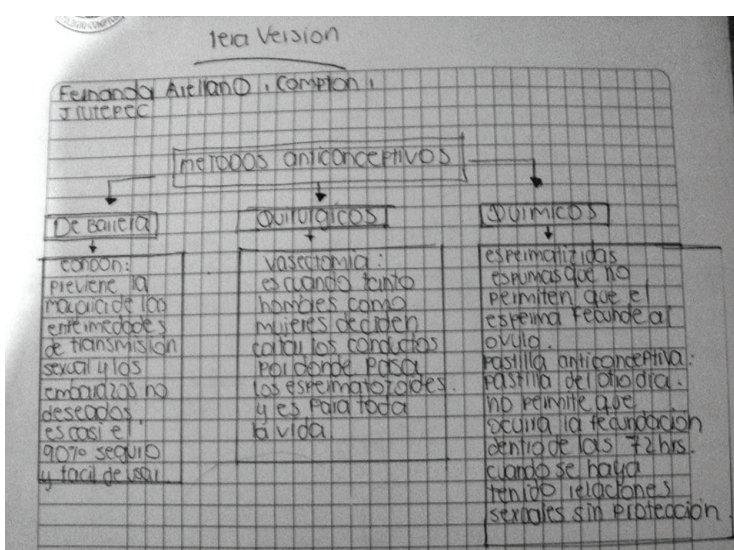 1era Version
Fernanda Arellano Compton
Jiutepec
metodos anticonceptivos
De Barrera
condon:
previene la
mayoria de las
enfermedades
de transmisión
sexual y los
embarazos no
deseados
es casi el
90% seguro
y facil de usar.
Quirurgicos
vasectomia:
es cuando tanto
hombres como
mujeres deciden
cortar los conductos
por donde pasa
los espermatozoides.
y es para toda
la vida
Quimicos
espermatizidas
espumas que no
permiten que el
esperma fecunde al
ovulo.
pastilla anticonceptiva:
pastilla del otro dia.
no permite que
ocurra la fecundación
dentro de las 72hrs.
cuando se haya
tenido relaciones
sexuales sin protección